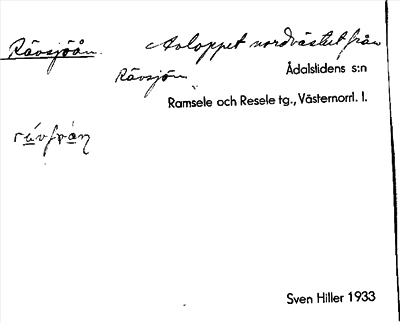 Rävsjöån. Avloppet nordväst från
Rävsjön
Ådalslidens s:n
Ramsele och Resele tg., Västernorrl. l.
Sven Hiller 1933